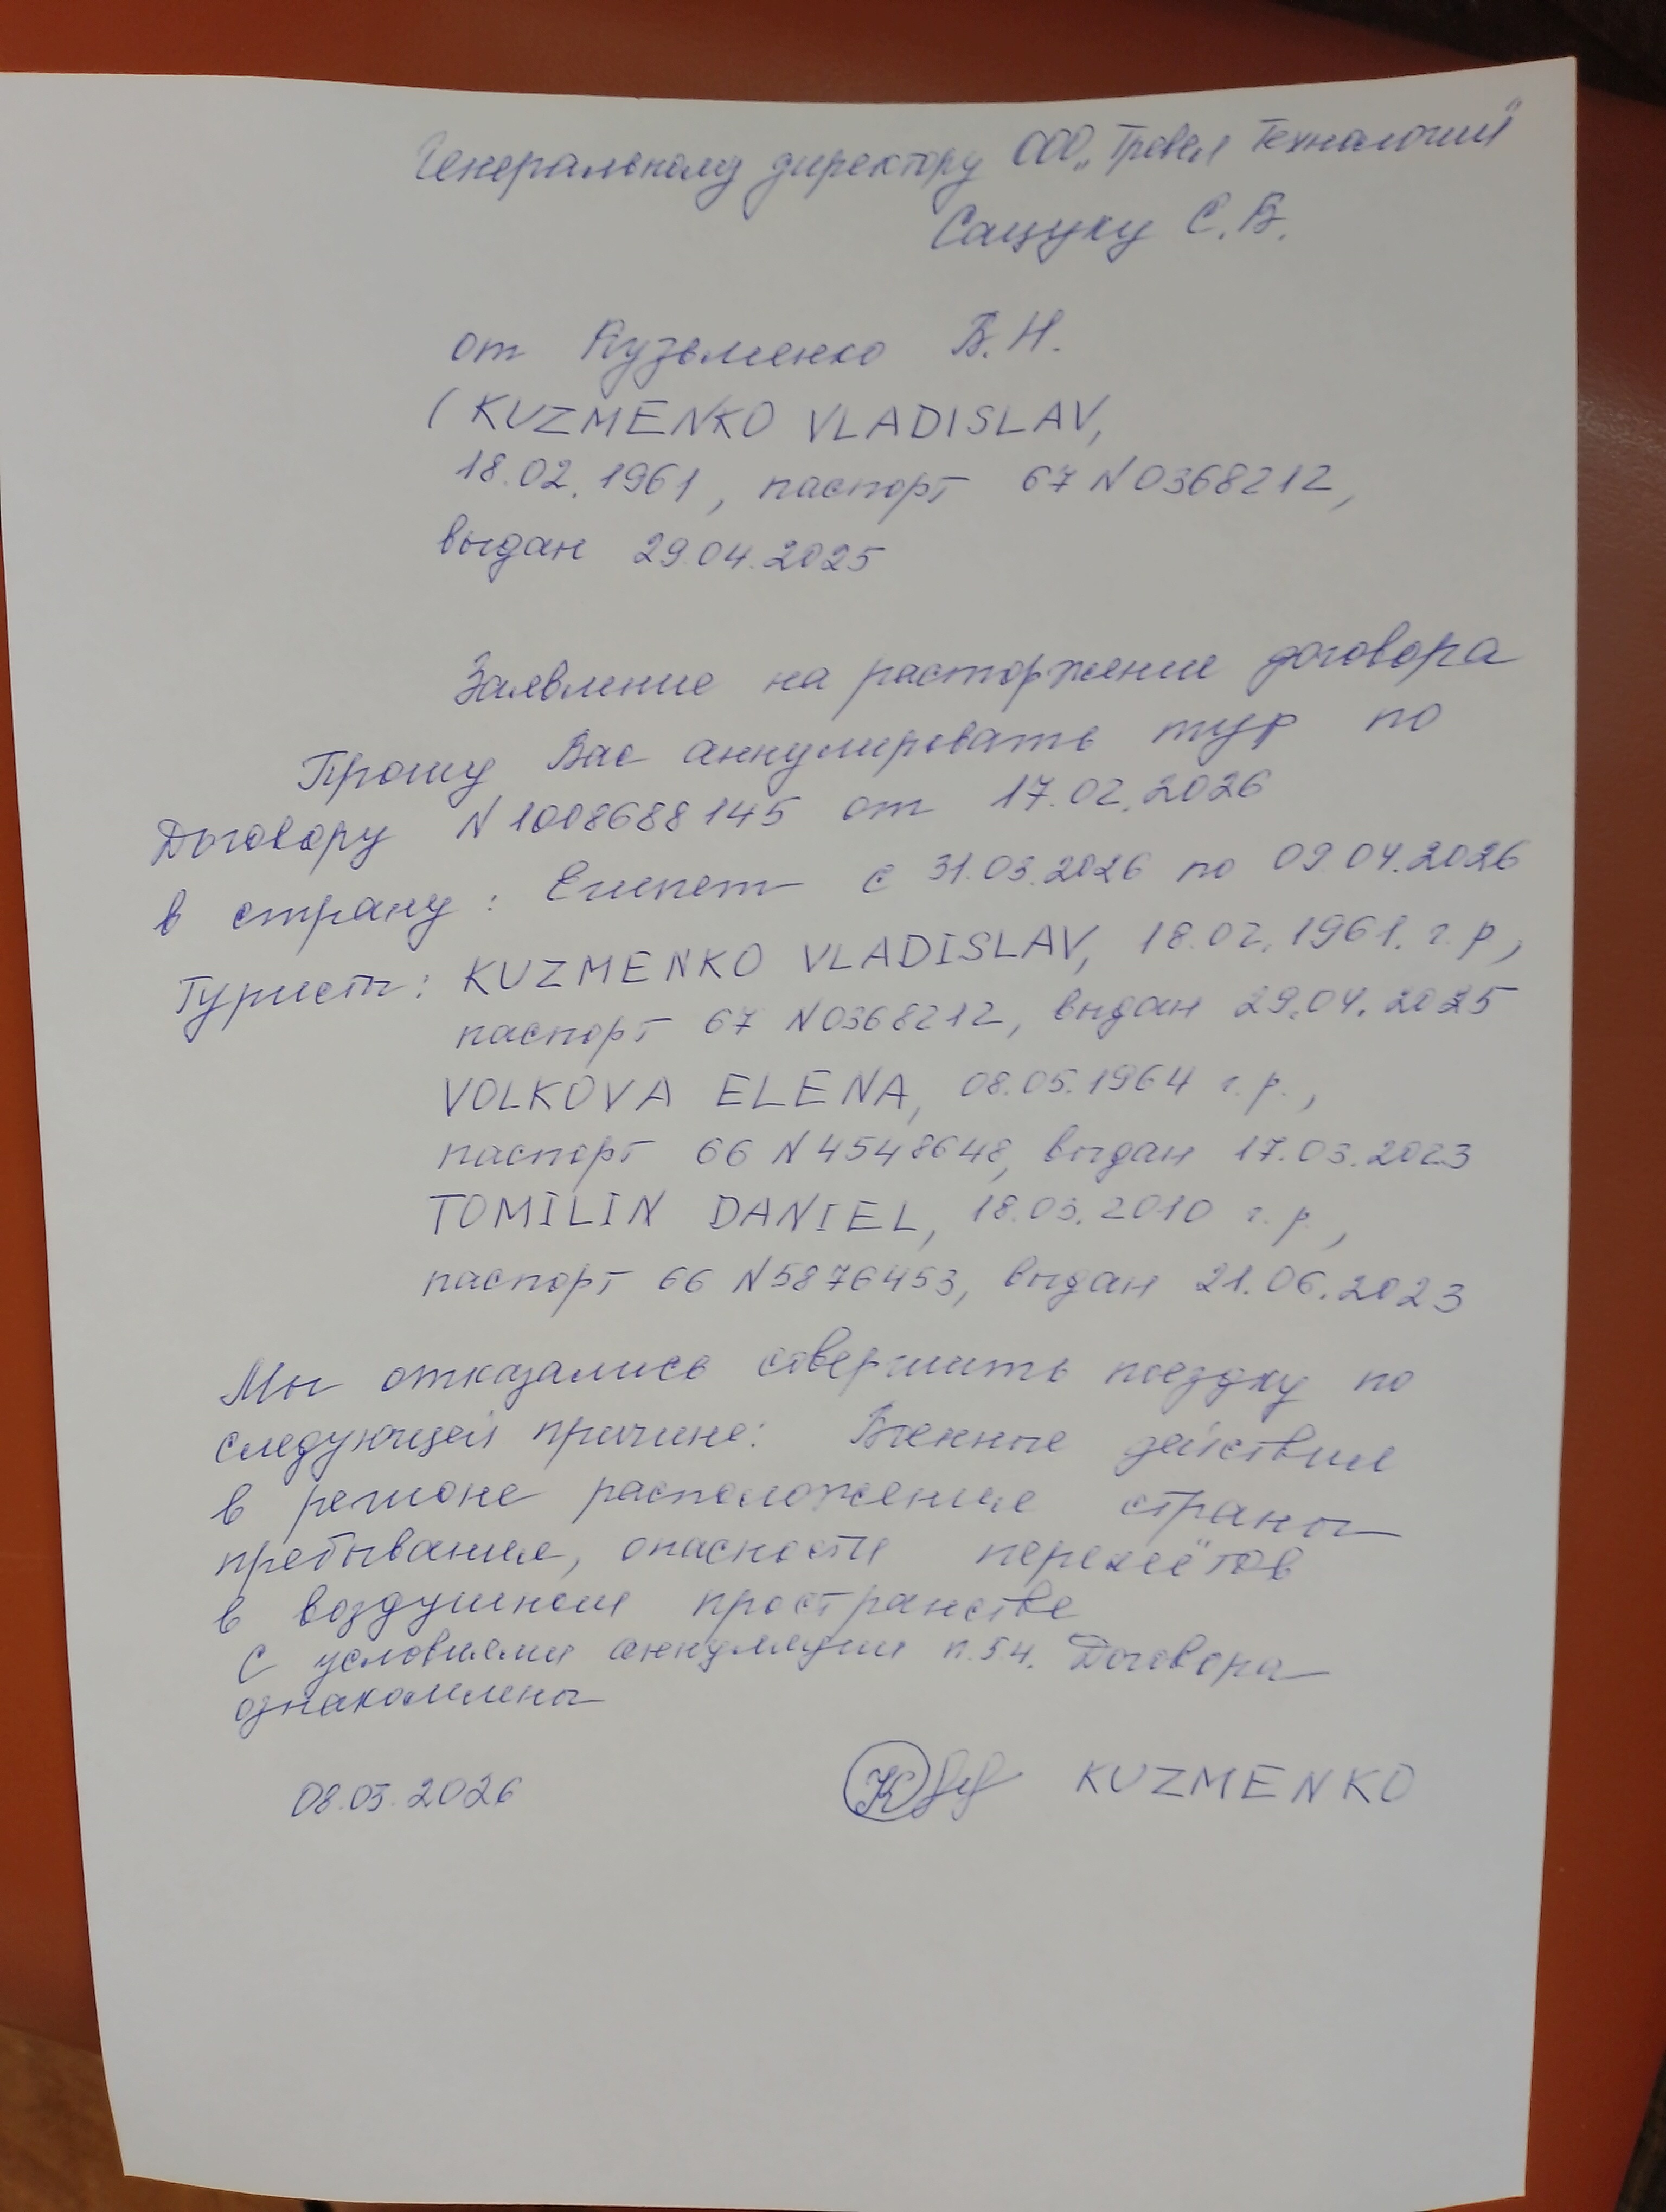 Генеральному директору ООО „Тревел Технологии"
Сацуку С.В.
от Кузьменко В.Н.
(KUZMENKO VLADISLAV,
18.02.1961, паспорт 67 N0368212,
выдан 29.04.2025
Заявление на расторжение договора
Прошу Вас аннулировать тур по
Договору N1008688145 от 17.02.2026
в страну: Египет с 31.03.2026 по 09.04.2026
Туристы: KUZMENKO VLADISLAV, 18.02.1961. г.р,
паспорт 67 N0368212, выдан 29.04.2025
VOLKOVA ELENA, 08.05.1964 г.р.,
паспорт 66 N4548648, выдан 17.03.2023
TOMILIN DANIEL, 18.03.2010 г.р,
паспорт 66 N5876453, выдан 21.06.2023
Мы отказались совершить поездку по
следующей причине: Военные действия
в регионе расположения страны
пребывания, опасности перелётов
в воздушном пространстве
С условиями аннуляции п.5 4. Договора
ознакомлены
08.03.2026 KUZMENKO